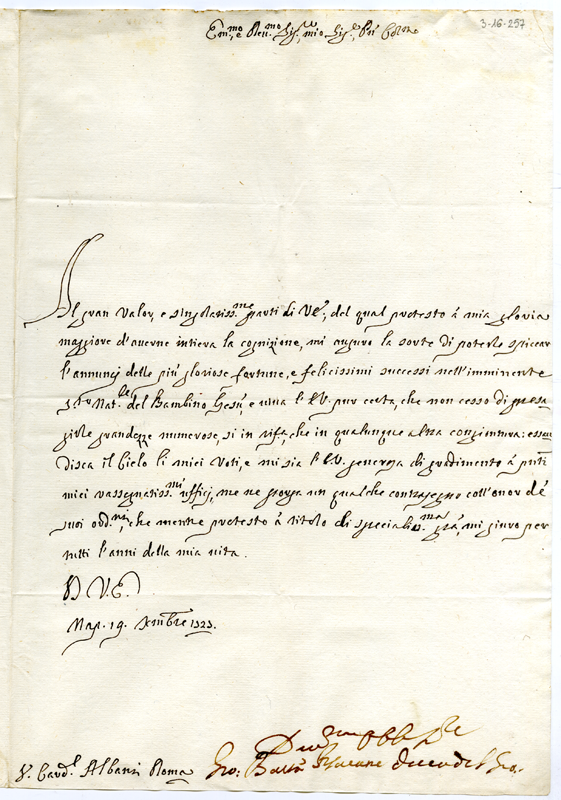 3-16-257
Em.mo e Rev.mo Sig.re mio Sig.re e Pn Colmo
Al gran Valor, e singolariss.me parti di VE, del qual protesto á mia gloria
maggiore d'averne intiera la cognizione, mi auguro la sorte di poterle spiccar
l'annunzj delle più gloriose fortune, e felicissimi successi nell'imminente
S.to Nat.le del Bambino Gesú, e viva l'E.V. pur certa, che non cesso di presa
girle grandezze numerose, si in rifa, che in qualunque altra congiuntura: esau
disca il Cielo li miei Voti, e mi sia l'E.V. generosa di gradimento á pnti
miei rassegnatiss.mi uffizj, me ne porga un qualche contrasegno coll'onor de
suoi ord.ni, che mentre protesto á titolo di specialis.ma gra, mi giuro per
tutti l'anni della mia vita.
D V.E.
Nap. 19. Xmbre 1723.
S.r Card.l Albani Roma
Gio: Batta Duca del